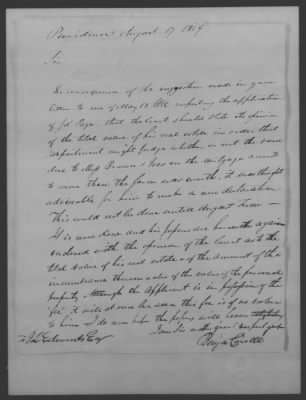 Providence August 17 1819
Sir
In consequence of the suggestion made in your
letter to me of May 12 Ult. respecting the application
of Jos. that the Court should state its opinion
of the total value of his real estate in order that
Department might judge whether or not the sum
due to Brown & Ives on the mortgage amounts
to more than the farm was worth, it was thought
advisable for him to make a new declaration
This could not be done until August Term —
It is now done and his papers are herewith again
endorsed with the opinion of the Court as to the
total value of his real estate & of the amount of the
incumbrance thereon also of the value of the personal
property. Although the Applicant is in possession of the
fee it will at once be seen this fee is of no value
to him. I do now hope the papers will be
I am Sir with great respect yours
To J. L. Edwards Esq Benja Cowell